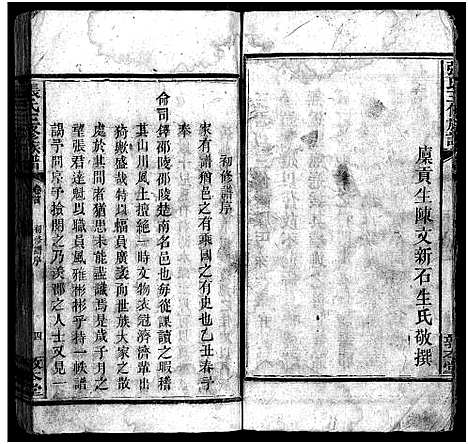 張氏三修族譜
廩貢生陳文新石生氏敬撰
敦本堂
初修譜序
家有譜猶邑之有乘國之有史也乙丑春予
奉
命司鐸邵陵邵陵楚南名邑也每從課讀之暇稽
其山川風土擅絕一時文物衣冠濟濟輩出
猗歟盛哉特以幅員廣袤而世族大家之散
處於其間者猶思未能盡識焉是歲子月之
望張君達魁以職員風雅彬彬乎持一帙譜
謁予問序予檢閱之乃羨鄒之人士又見一
張氏三修族譜
卷首
初修譜序
四
敦本堂